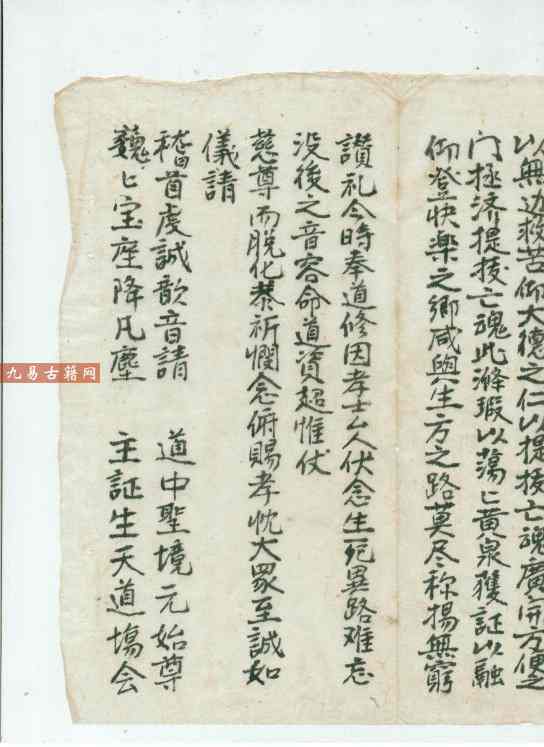 以無边救苦仰大德之仁以提拔亡魂廣開方便之
门拯济提拔亡魂此滌瑕以蕩〻黄泉獲証以融
仰登快楽之鄉咸與生方之路莫尽称揚無窮
讚礼今時奉道修因孝士厶人伏念生死異路难忘
没後之音容命道資超惟仗
慈尊而脱化恭祈憫念俯賜孝忱大眾至誠如
儀請
稽首虔誠歆音請 道中聖境元始尊
巍〻宝座降凡塵 主証生天道場会
九易古籍网